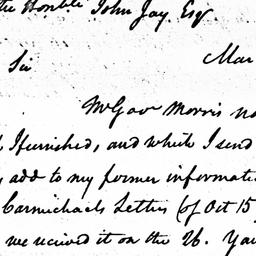 the Honble John Jay Esqr
Mar
Sir
Mr Gov Morris no
I furnished, and which I send
add to my former informati
Carmichaels Letter (of Oct 15
we recieved it on the 26. You